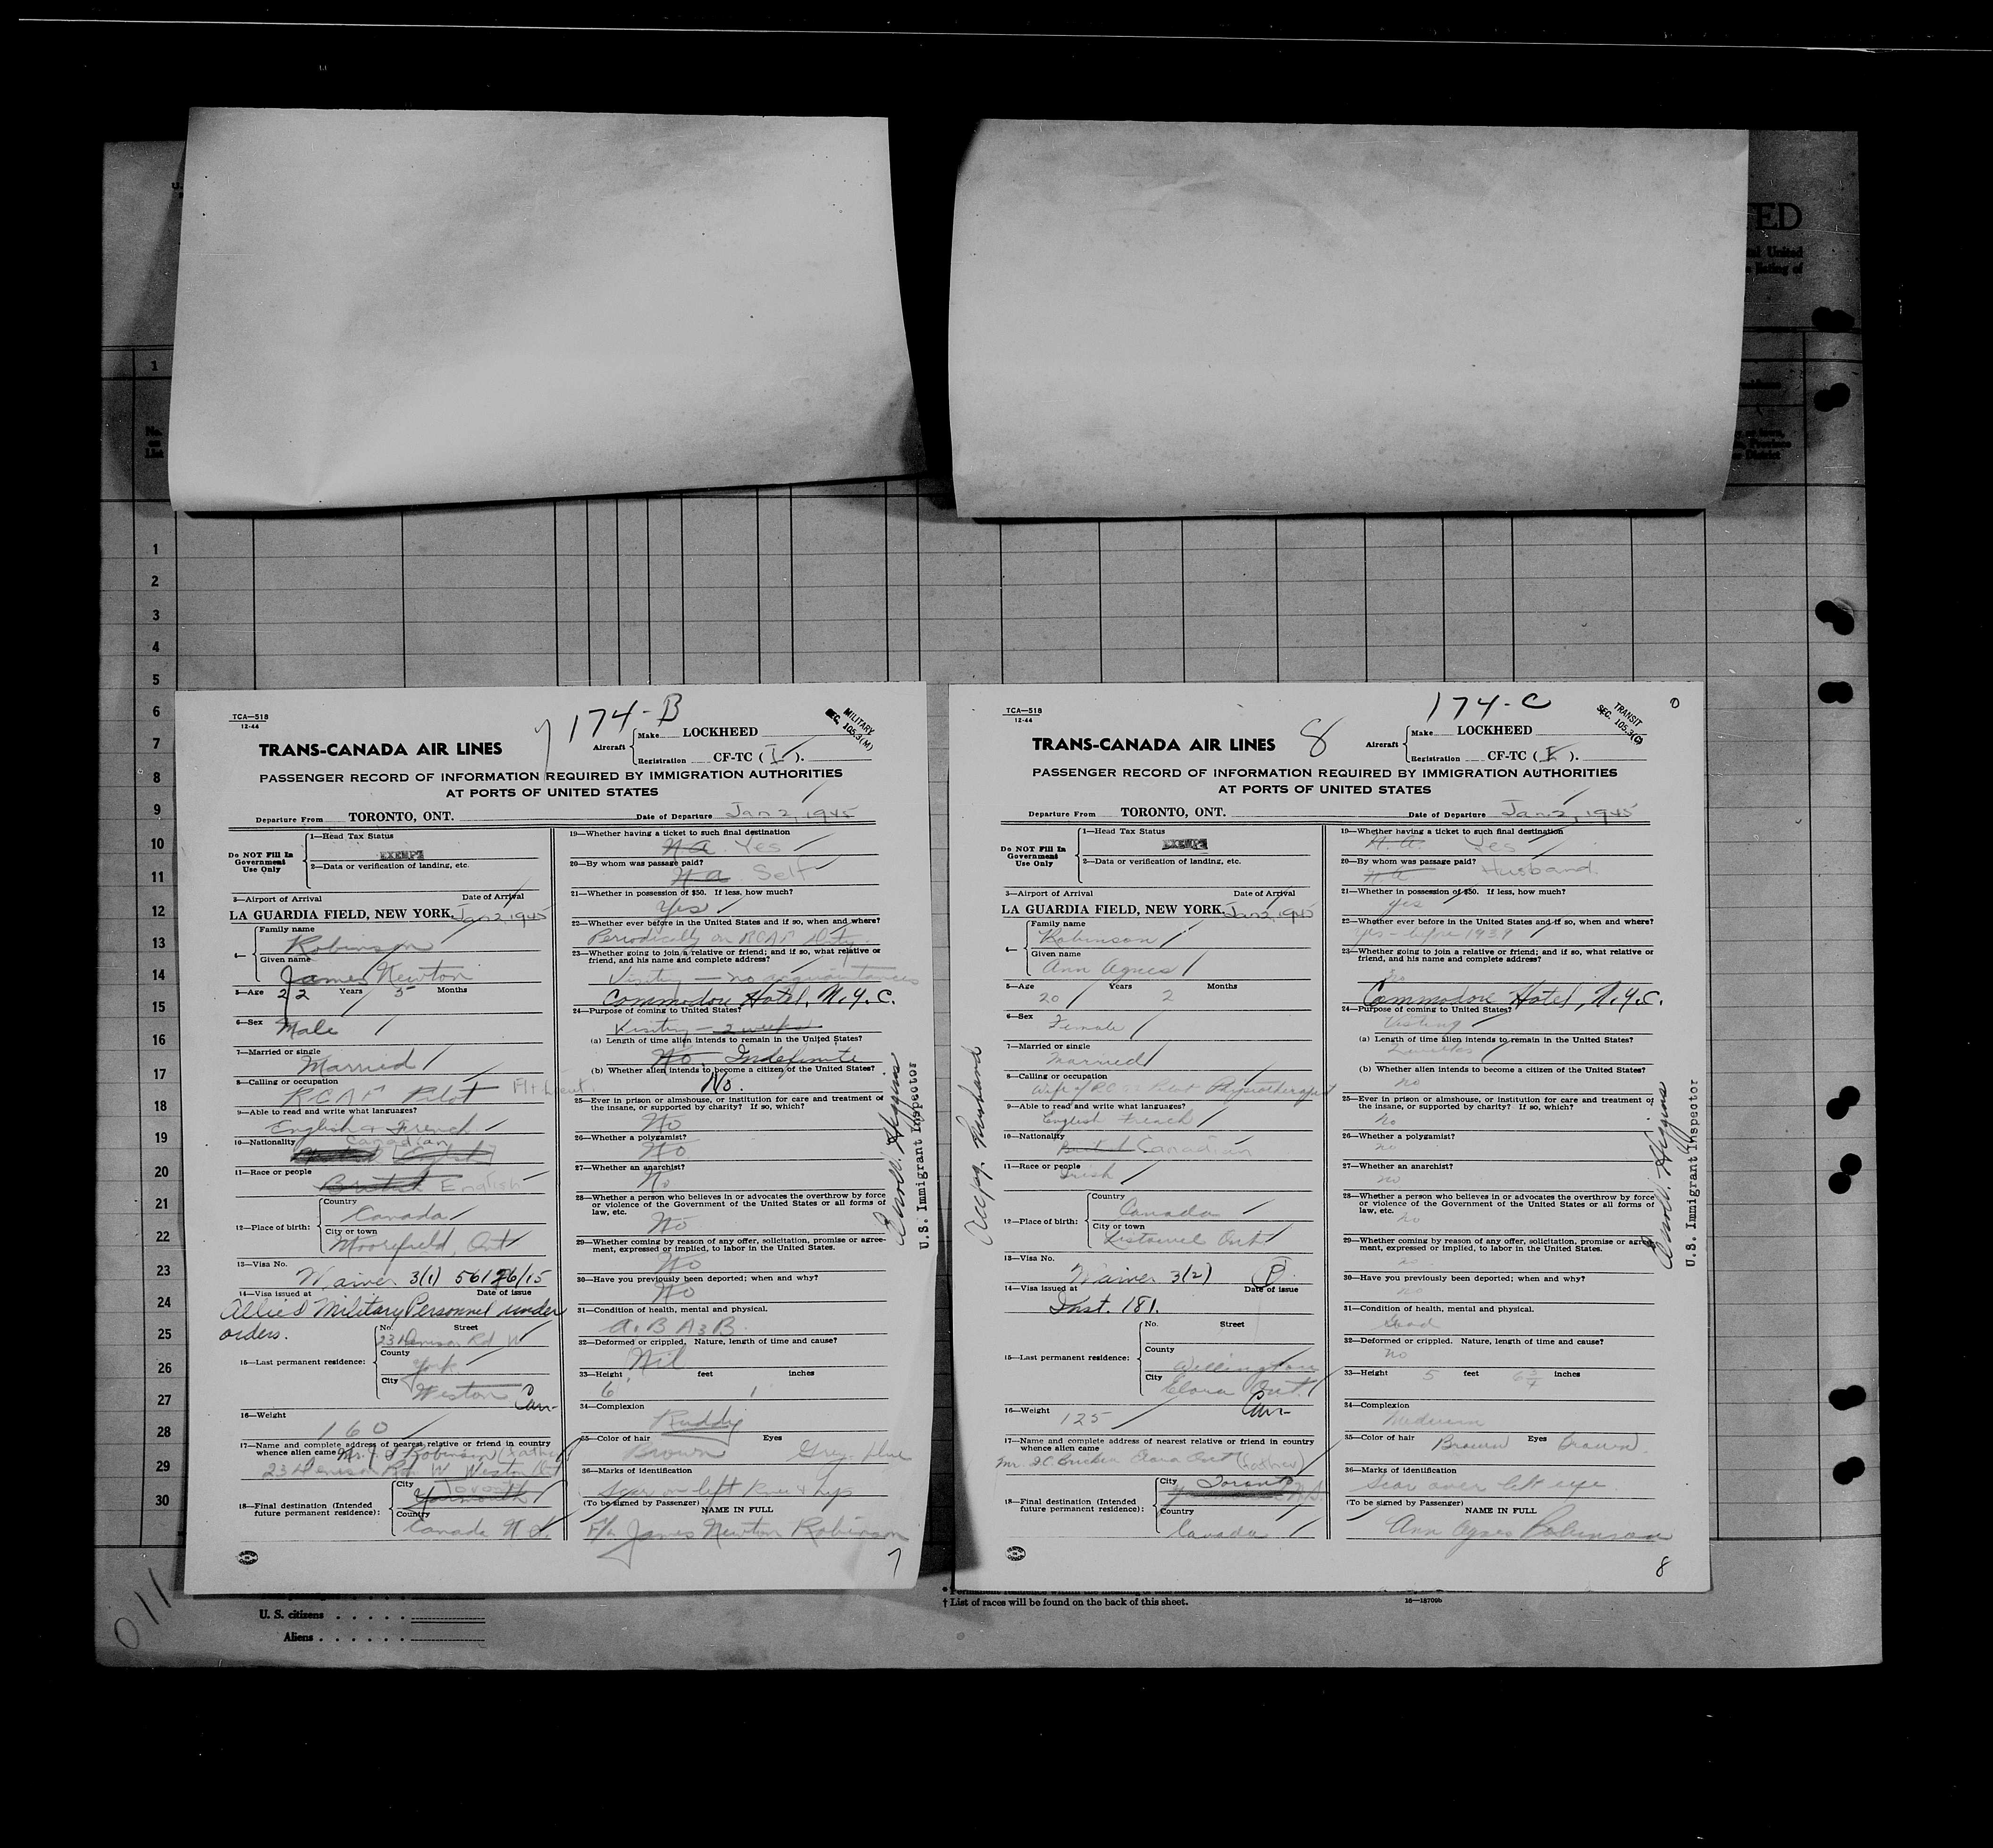 ED
1
No. on List
1
2
3
4
5
6
7
8
9
10
11
12
13
14
15
16
17
18
19
20
21
22
23
24
25
26
27
28
29
30
TCA—518
12-44
7 174-B
MILITARY
SEC. 105.3(M)
TRANS-CANADA AIR LINES
Aircraft Make LOCKHEED
Registration CF-TC ( I ).
PASSENGER RECORD OF INFORMATION REQUIRED BY IMMIGRATION AUTHORITIES
AT PORTS OF UNITED STATES
Departure From TORONTO, ONT. Date of Departure Jan 2, 1945
Do NOT Fill In Government Use Only
1—Head Tax Status
EXEMPT
2—Data or verification of landing, etc.
3—Airport of Arrival Date of Arrival
LA GUARDIA FIELD, NEW YORK. Jan 2, 1945
4— Family name
Robinson
Given name
James Newton
5—Age 22 Years 5 Months
6—Sex
Male
7—Married or single
Married
8—Calling or occupation
RCAF Pilot Flt Lieut.
9—Able to read and write what languages?
English & French
10—Nationality Canadian
11—Race or people
British English
12—Place of birth: Country
Canada
City or town
Moorefield, Ont
13—Visa No.
Waiver 3(1) 56126/15
14—Visa issued at Date of issue
Allied Military Personnel under
orders.
15—Last permanent residence: No. Street
23 Denison Rd W
County
York
City
Weston Can-
16—Weight
160
17—Name and complete address of nearest relative or friend in country
whence alien came Mr. Robinson (Father)
23 Denison Rd. W Weston Ont
18—Final destination (Intended
future permanent residence): City Toronto
Yarmouth
Country
Canada N.S.
19—Whether having a ticket to such final destination
N.A. Yes
20—By whom was passage paid?
N.A Self
21—Whether in possession of $50. If less, how much?
Yes
22—Whether ever before in the United States and if so, when and where?
Periodically on RCAF Duty
23—Whether going to join a relative or friend; and if so, what relative or
friend, and his name and complete address?
Visiting — no acquaintances
Commodore Hotel, N.Y.C.
24—Purpose of coming to United States?
Visiting — 2 weeks
(a) Length of time alien intends to remain in the United States?
No Indefinite
(b) Whether alien intends to become a citizen of the United States?
No.
25—Ever in prison or almshouse, or institution for care and treatment of
the insane, or supported by charity? If so, which?
No
26—Whether a polygamist?
No
27—Whether an anarchist?
No
28—Whether a person who believes in or advocates the overthrow by force
or violence of the Government of the United States or all forms of
law, etc.
No
29—Whether coming by reason of any offer, solicitation, promise or agree-
ment, expressed or implied, to labor in the United States.
No
30—Have you previously been deported; when and why?
No
31—Condition of health, mental and physical.
A1B A3B
32—Deformed or crippled. Nature, length of time and cause?
Nil
33—Height feet inches
6 1
34—Complexion
Ruddy
35—Color of hair Eyes
Brown Grey-blue
36—Marks of identification
Scar on left knee & hip
(To be signed by Passenger) NAME IN FULL
F/L James Newton Robinson
7
U.S. Immigrant Inspector
TCA—518
12-44
174-C
TRANSIT
SEC. 105.3(C)
TRANS-CANADA AIR LINES 8
Aircraft Make LOCKHEED
Registration CF-TC ( I ).
PASSENGER RECORD OF INFORMATION REQUIRED BY IMMIGRATION AUTHORITIES
AT PORTS OF UNITED STATES
Departure From TORONTO, ONT. Date of Departure Jan 2, 1945
Do NOT Fill In Government Use Only
1—Head Tax Status
EXEMPT
2—Data or verification of landing, etc.
3—Airport of Arrival Date of Arrival
LA GUARDIA FIELD, NEW YORK. Jan 2, 1945
4— Family name
Robinson
Given name
Ann Agnes
5—Age 20 Years 2 Months
6—Sex
Female
7—Married or single
Married
8—Calling or occupation
Wife of RCAF Pilot Physiotherapist
9—Able to read and write what languages?
English French
10—Nationality
British Canadian
11—Race or people
Irish
12—Place of birth: Country
Canada
City or town
Listowel Ont
13—Visa No.
Waiver 3(2)
14—Visa issued at Date of issue
Inst. 181.
15—Last permanent residence: No. Street
County
Wellington
City
Elora Ont.
Can-
16—Weight
125
17—Name and complete address of nearest relative or friend in country
whence alien came
Mr. Elora Ont (father)
18—Final destination (Intended
future permanent residence): City Toronto
Country
Canada
Accpg. husband
19—Whether having a ticket to such final destination
N.A. Yes
20—By whom was passage paid?
N.A Husband
21—Whether in possession of $50. If less, how much?
yes
22—Whether ever before in the United States and if so, when and where?
yes - before 1939
23—Whether going to join a relative or friend; and if so, what relative or
friend, and his name and complete address?
no
Commodore Hotel, N.Y.C.
24—Purpose of coming to United States?
Visiting
(a) Length of time alien intends to remain in the United States?
2 weeks
(b) Whether alien intends to become a citizen of the United States?
no
25—Ever in prison or almshouse, or institution for care and treatment of
the insane, or supported by charity? If so, which?
no
26—Whether a polygamist?
no
27—Whether an anarchist?
no
28—Whether a person who believes in or advocates the overthrow by force
or violence of the Government of the United States or all forms of
law, etc.
no
29—Whether coming by reason of any offer, solicitation, promise or agree-
ment, expressed or implied, to labor in the United States.
no
30—Have you previously been deported; when and why?
no
31—Condition of health, mental and physical.
Good
32—Deformed or crippled. Nature, length of time and cause?
no
33—Height 5 feet 6 3/4 inches
34—Complexion
Medium
35—Color of hair Brown Eyes Brown
36—Marks of identification
Scar over left eye.
(To be signed by Passenger) NAME IN FULL
Ann Agnes Robinson
8
U.S. Immigrant Inspector
011
U. S. citizens
Aliens
† List of races will be found on the back of this sheet.
16—18709b